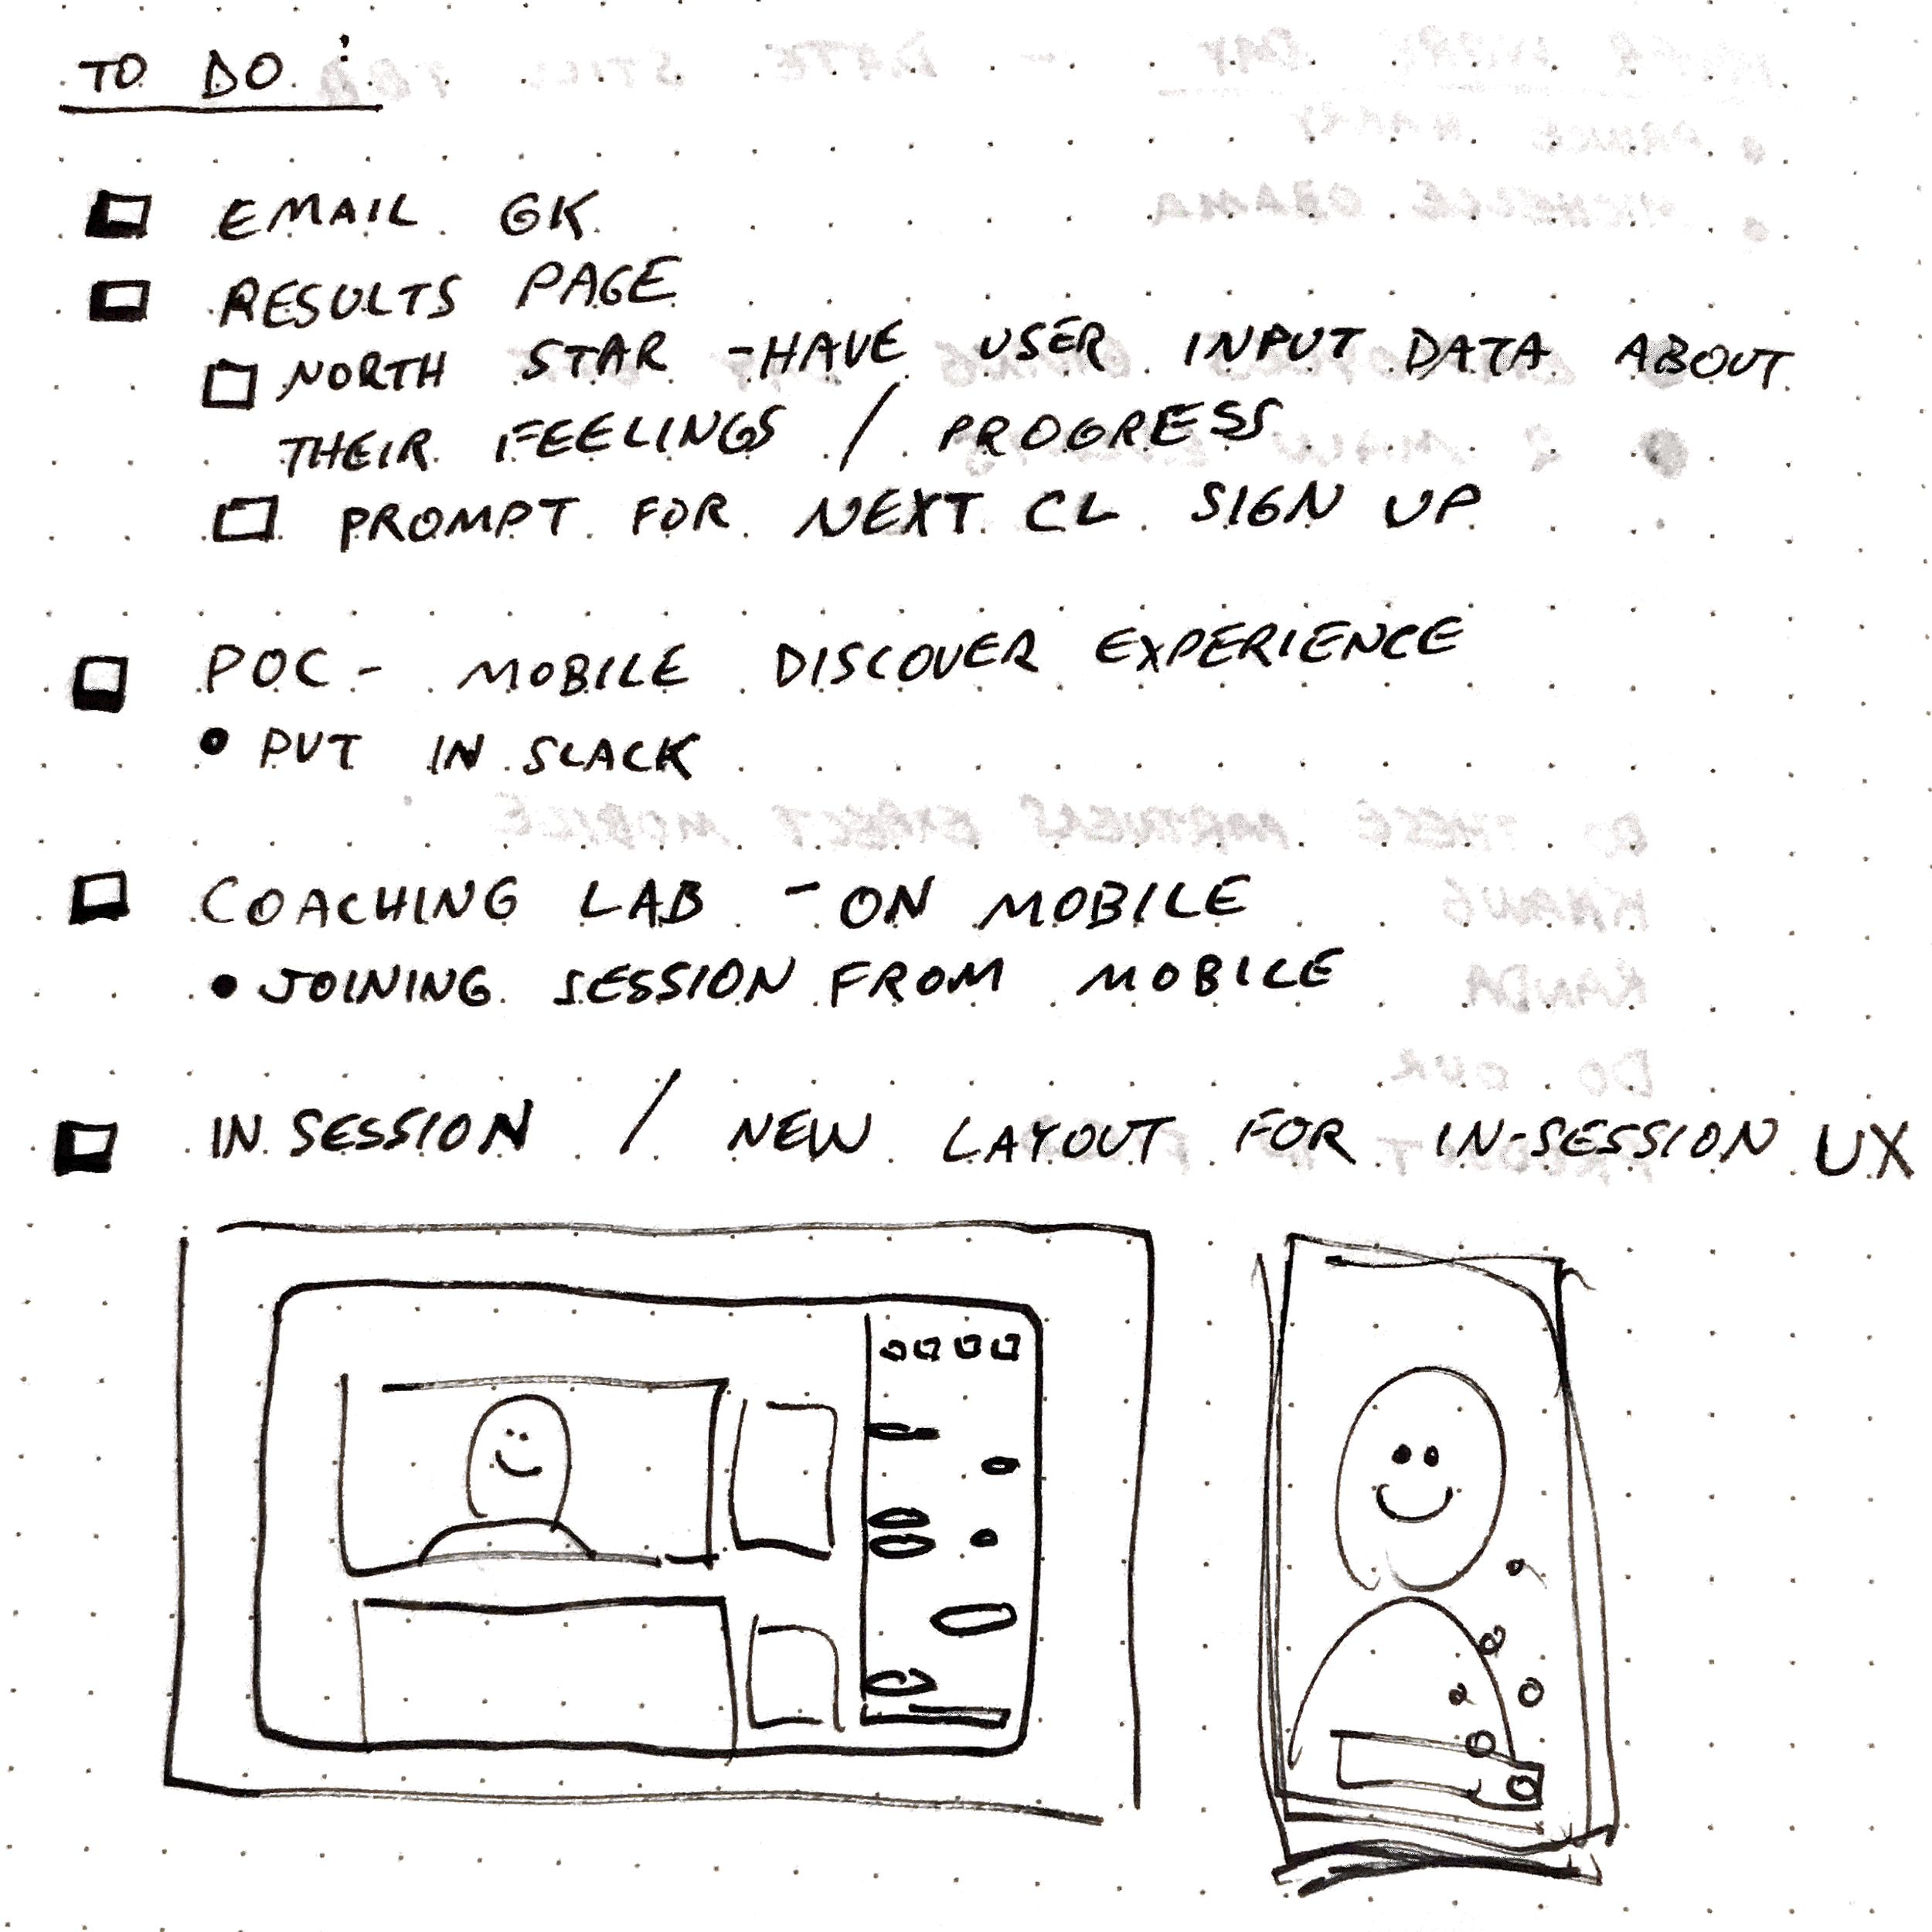 TO DO:
EMAIL GK
RESULTS PAGE
NORTH STAR - HAVE USER INPUT DATA ABOUT
THEIR FEELINGS / PROGRESS
PROMPT FOR NEXT CL SIGN UP
POC - MOBILE DISCOVER EXPERIENCE
• PUT IN SLACK
COACHING LAB - ON MOBILE
• JOINING SESSION FROM MOBILE
IN SESSION / NEW LAYOUT FOR IN-SESSION UX